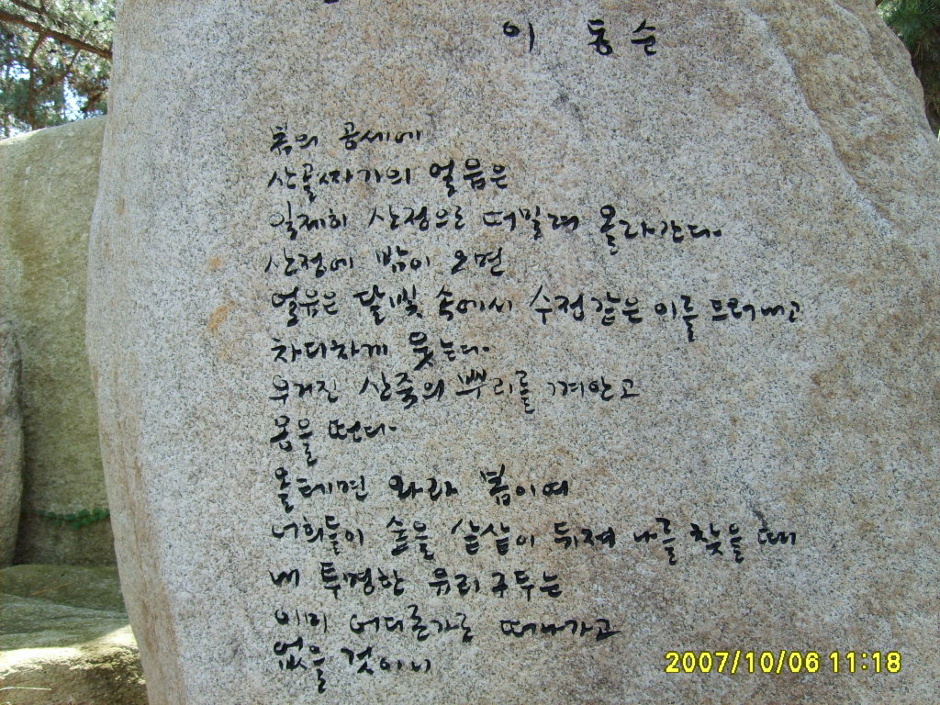 이 동 순
봄의 공세에
산골짜기의 얼음은
일제히 산정으로 떠밀려 올라간다.
산정에 밤이 오면
얼음은 달빛 속에서 수정같은 이를 드러내고
차디차게 웃는다.
우거진 산죽의 뿌리를 껴안고
몸을 떤다.
올테면 와라 봄이여
너희들이 숲을 샅샅이 뒤져 나를 찾을 때
내 투명한 유리구두는
이미 어디론가로 떠나가고
없을 것이니
2007/10/06 11:18